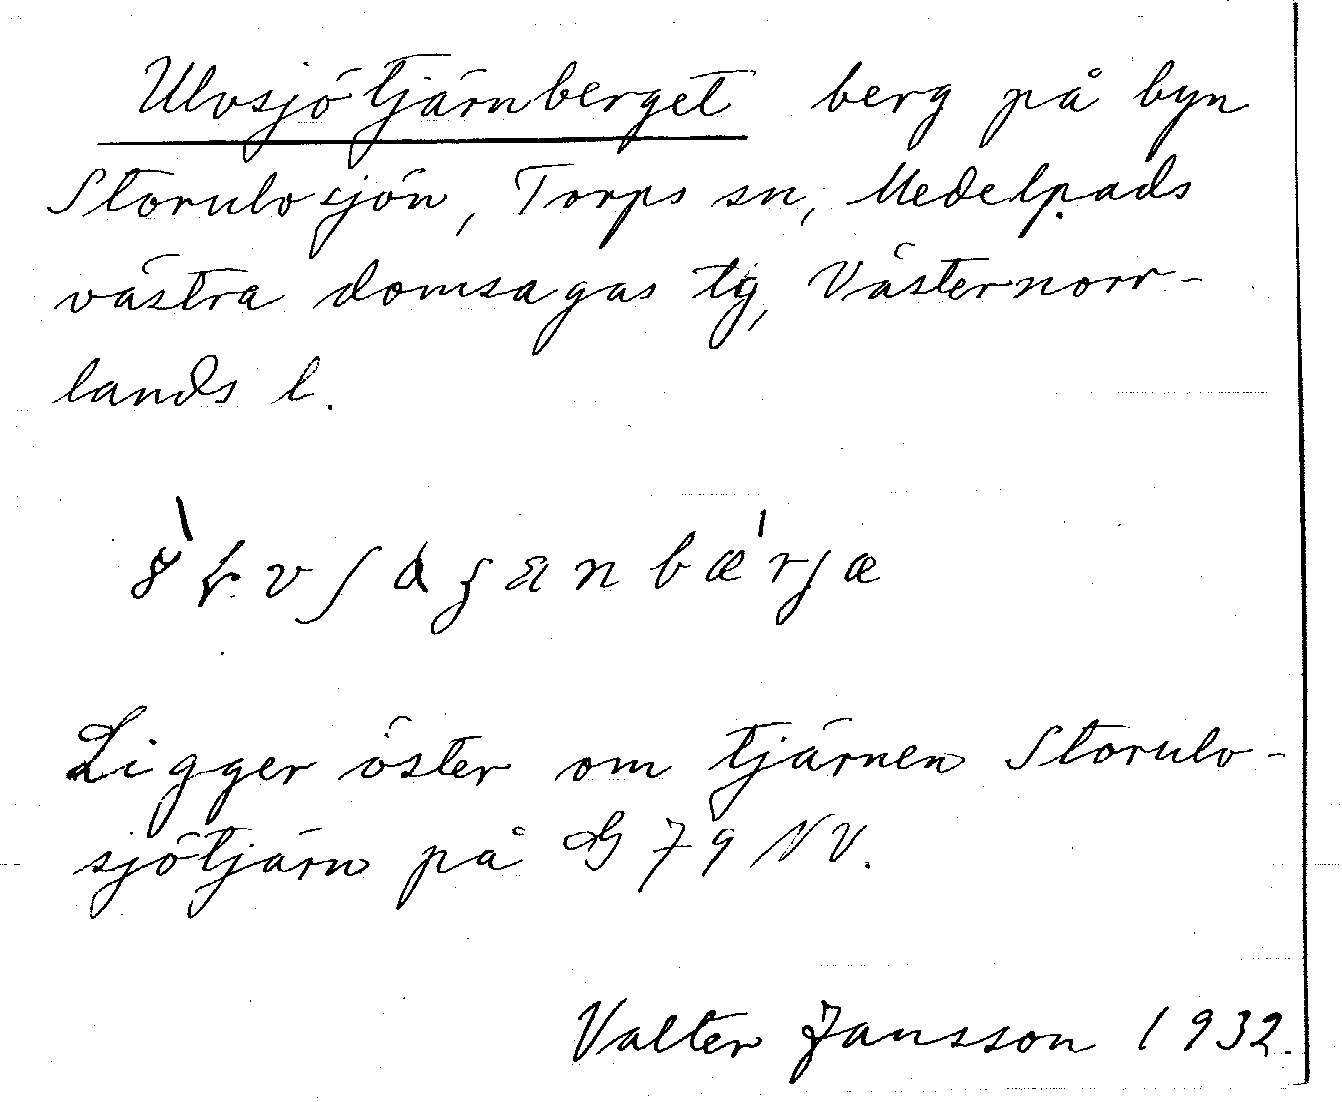 Ulvsjötjärnberget berg på byn
Storulvsjön, Torps sn, Medelpads
västra domsagas tg, Västernorr-
lands l.
Ligger öster om tjärnen Storulv-
sjötjärn på G 79 NV.
Valter Jansson 1932.